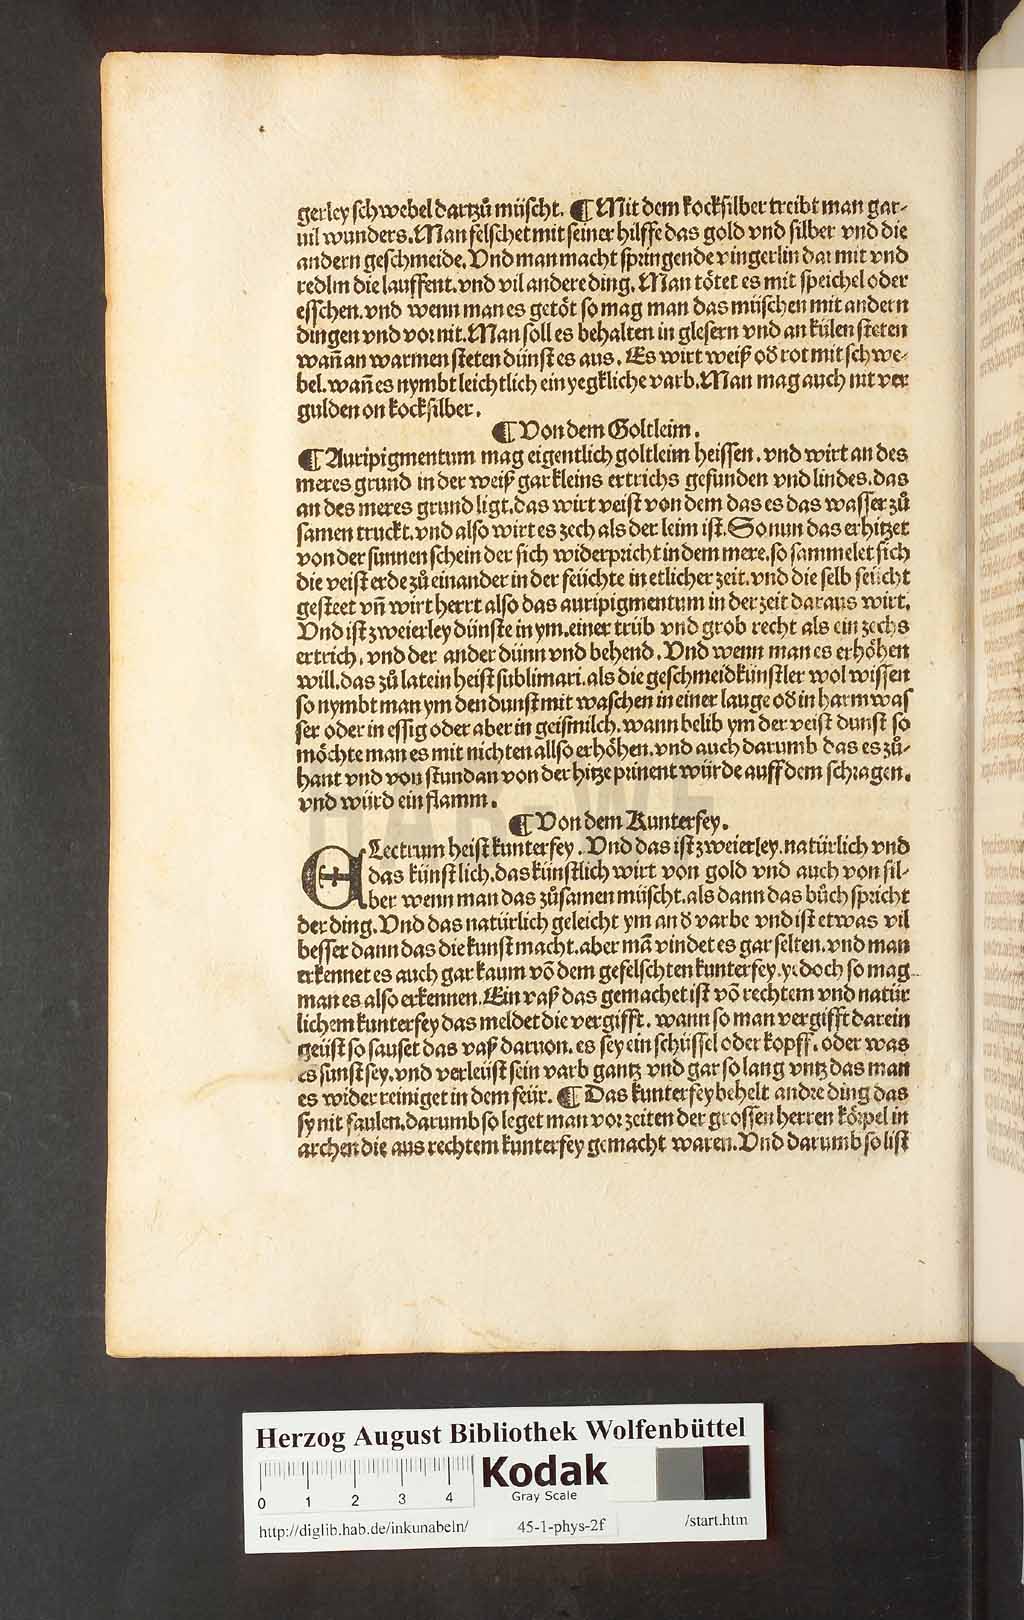 gerley schwebel dartzů müscht. ¶ Mit dem kocksilber treibt man gar-
uil wunders. Man felschet mit seiner hilffe das gold vnd silber vnd die
andern geschmeide. Vnd man macht springende vingerlin dar mit vnd
redlin die lauffent. vnd vil andere ding. Man tötet es mit speichel oder
esschen. vnd wenn man es getöt so mag man das müschen mit andern
dingen vnd vor nit. Man soll es behalten in glesern vnd an külen steten
wañ an warmen steten dünst es aus. Es wirt weiß oď rot mit schwe-
bel. wañ es nymbt leichtlich ein yegkliche varb. Man mag auch nit ver
gulden on kocksilber.
¶ Von dem Goltleim.
¶ Auripigmentum mag eigentlich goltleim heissen. vnd wirt an des
meres grund in der weiß gar kleins ertrichs gefunden vnd lindes. das
an des meres grund ligt. das wirt veist von dem das es das wasser zů
samen truckt. vnd also wirt es zech als der leim ist. So nun das erhitzet
von der sunnen schein der sich widerpricht in dem mere. so sammelet sich
die veist erde zů einander in der feüchte in etlicher zeit. vnd die selb feücht
gesteet vñ wirt herrt also das auripigmentum in der zeit daraus wirt.
Vnd ist zweierley dünste in ym. einer trüb vnd grob recht als ein zechs
ertrich. vnd der ander dünn vnd behend. Vnd wenn man es erhöhen
will. das zů latein heist sublimari. als die geschmeidkünstler wol wissen
so nymbt man ym den dunst mit waschen in einer lauge oď in harmwas
ser oder in essig oder aber in geißmilch. wann belib ym der veist dunst so
möchte man es mit nichten allso erhöhen. vnd auch darumb das es zů-
hant vnd von stund an von der hitze prinent würde auff dem schragen.
vnd würd ein flamm.
¶ Von dem Kunterfey.
ELectrum heist kunterfey. Vnd das ist zweierley. natürlich vnd
das künstlich. das künstlich wirt von gold vnd auch von sil-
ber wenn man das zůsamen müscht. als dann das bůch spricht
der ding. Vnd das natürlich geleicht ym an ď varbe vnd ist etwas vil
besser dann das die kunst macht. aber mã vindet es gar selten. vnd man
erkennet es auch gar kaum võ dem gefelschten kunterfey. yedoch so mag
man es also erkennen. Ein vaß das gemachet ist võ rechtem vnd natür
lichem kunterfey das meldet die vergifft. wann so man vergifft darein
geüst so sauset das vaß daruon. es sey ein schüssel oder kopff. oder was
es sunst sey. vnd verleüst sein varb gantz vnd gar so lang vntz das man
es wider reiniget in dem feür. ¶ Das kunterfey behelt andre ding das
sy nit faulen. darumb so leget man vor zeiten der grossen herren körpel in
archen die aus rechtem kunterfey gemacht waren. Vnd darumb so list
HAB-WF
Herzog August Bibliothek Wolfenbüttel
0 1 2 3 4
Kodak
Gray Scale
http://diglib.hab.de/inkunabeln/ 45-1-phys-2f /start.htm